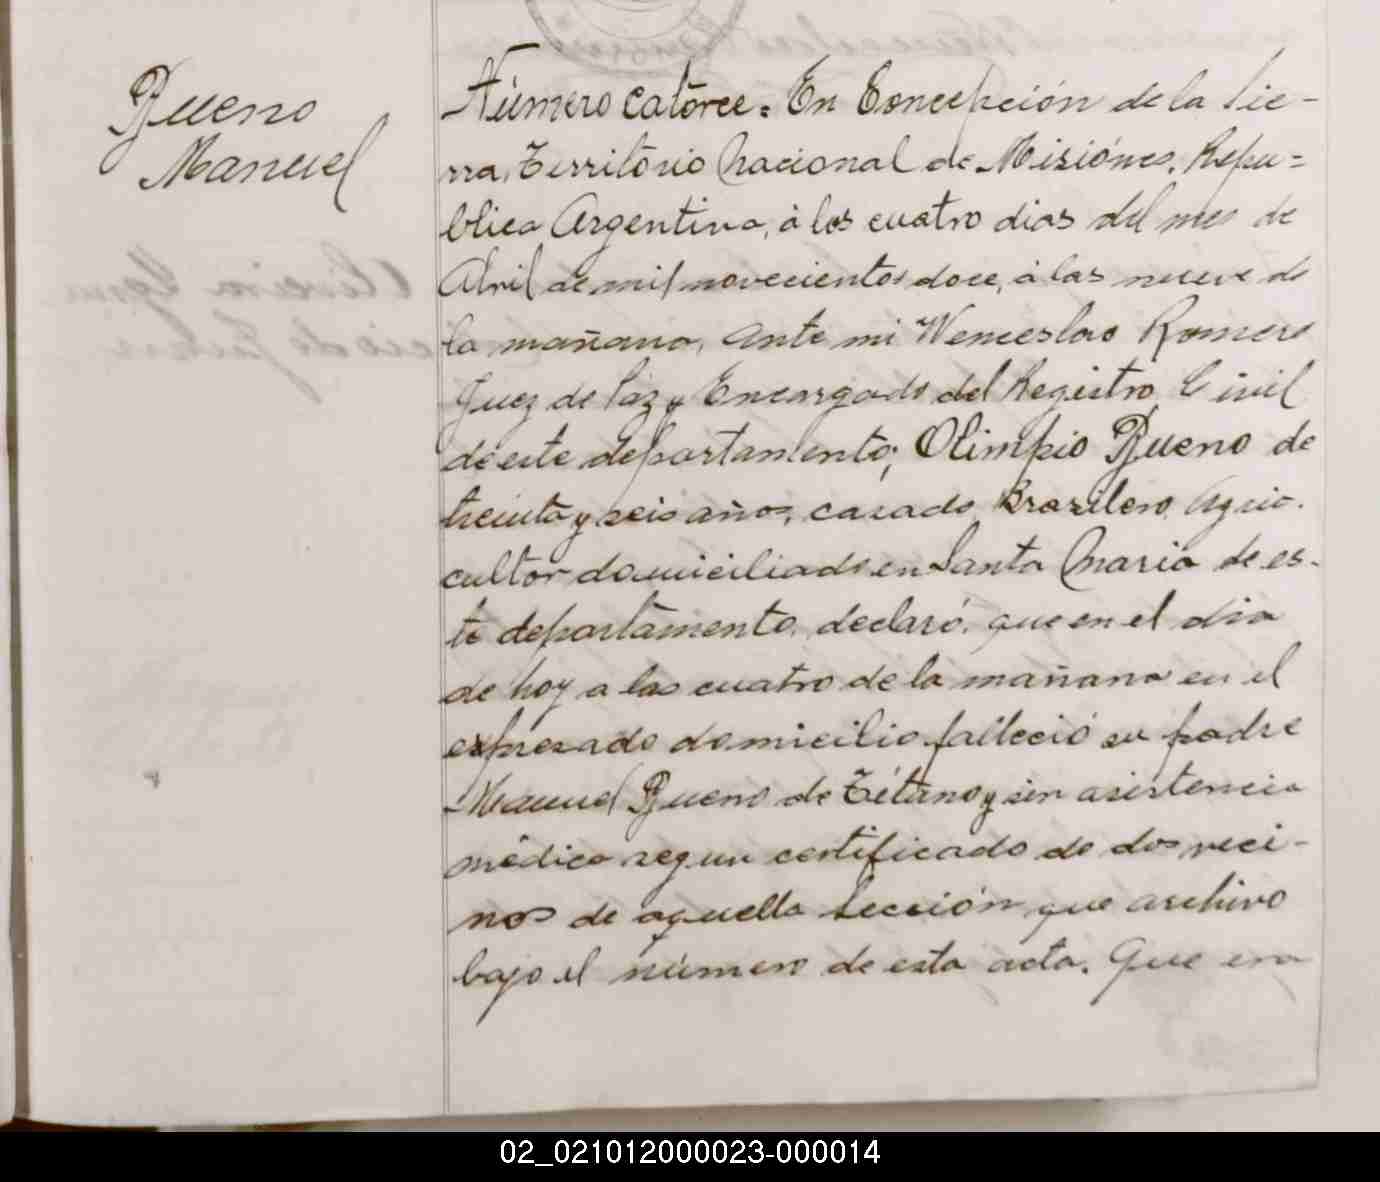 Bueno
Manuel
Número catorce = En Concepción de la Sie-
rra, Territorio Nacional de Misiónes, Repu=
blica Argentina, á los cuatro dias del mes de
Abril de mil novecientos doce, á las nueve de
la mañana, ante mi Wenceslao Romero
Juez de Paz y Encargado del Registro Civil
de este departamento; Olimpio Bueno de
treinta y seis años, casado, Brazilero, Agri-
cultor domiciliado en Santa Maria de es-
te departamento, declaró, que en el dia
de hoy a las cuatro de la mañana en el
expresado domicilio falleció su padre
Manuel Bueno de Tétano y sin asistencia
médica segun certificado de dos veci-
nos de aquella Sección que archivo
bajo el número de esta acta. Que era
02_021012000023-000014